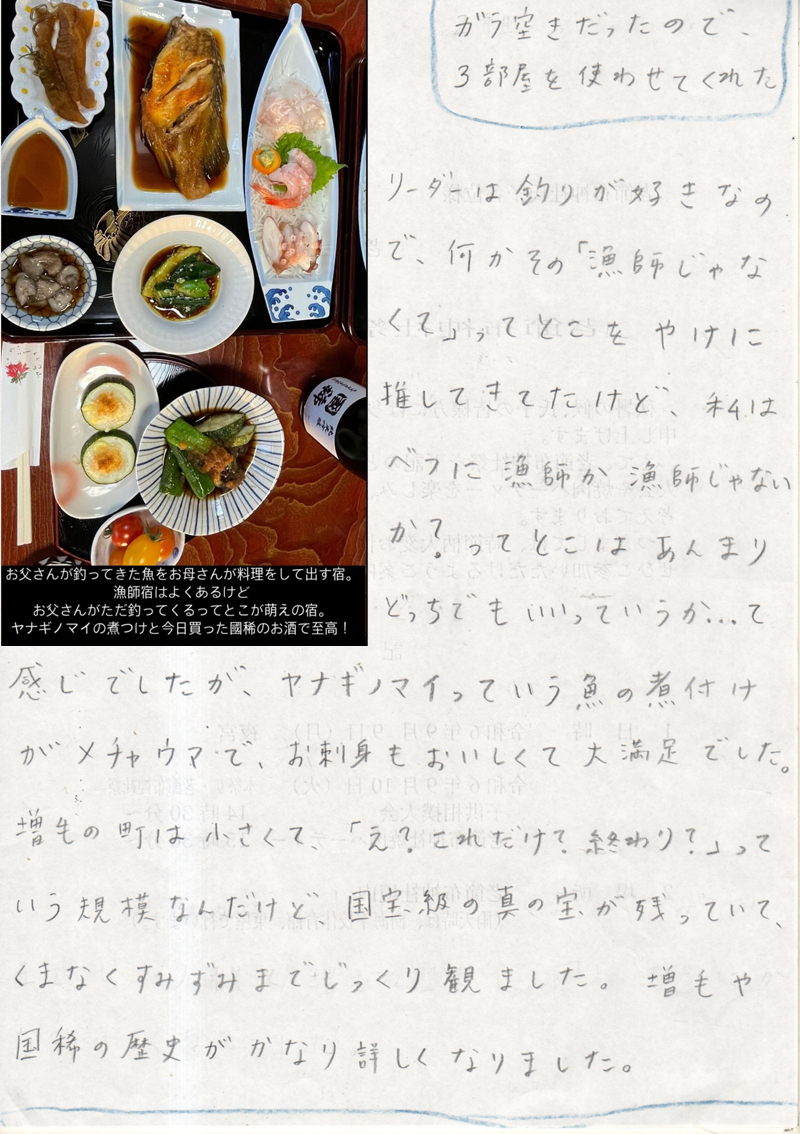 ガラ空きだったので、
3部屋を使わせてくれた
リーダーは釣りが好きなの
で、何かその「漁師じゃな
くて」ってとこを やけに
推してきてたけど、私は
ベツに漁師か漁師じゃない
か?ってとこはあんまり
どっちでもいいっていうか...て
感じでしたが、ヤナギノマイっていう魚の煮付け
がメチャウマで、お刺身もおいしくて大満足でした。
増毛の町は小さくて、「え?これだけ?終わり?」って
いう規模なんだけど 国宝級の真の宝が残っていて、
くまなくすみずみまでじっくり観ました。 増毛や
国稀の歴史がかなり詳しくなりました。
國稀
お父さんが釣ってきた魚をお母さんが料理をして出す宿。
漁師宿はよくあるけど
お父さんがただ釣ってくるってとこが萌えの宿。
ヤナギノマイの煮つけと今日買った國稀のお酒で至高!